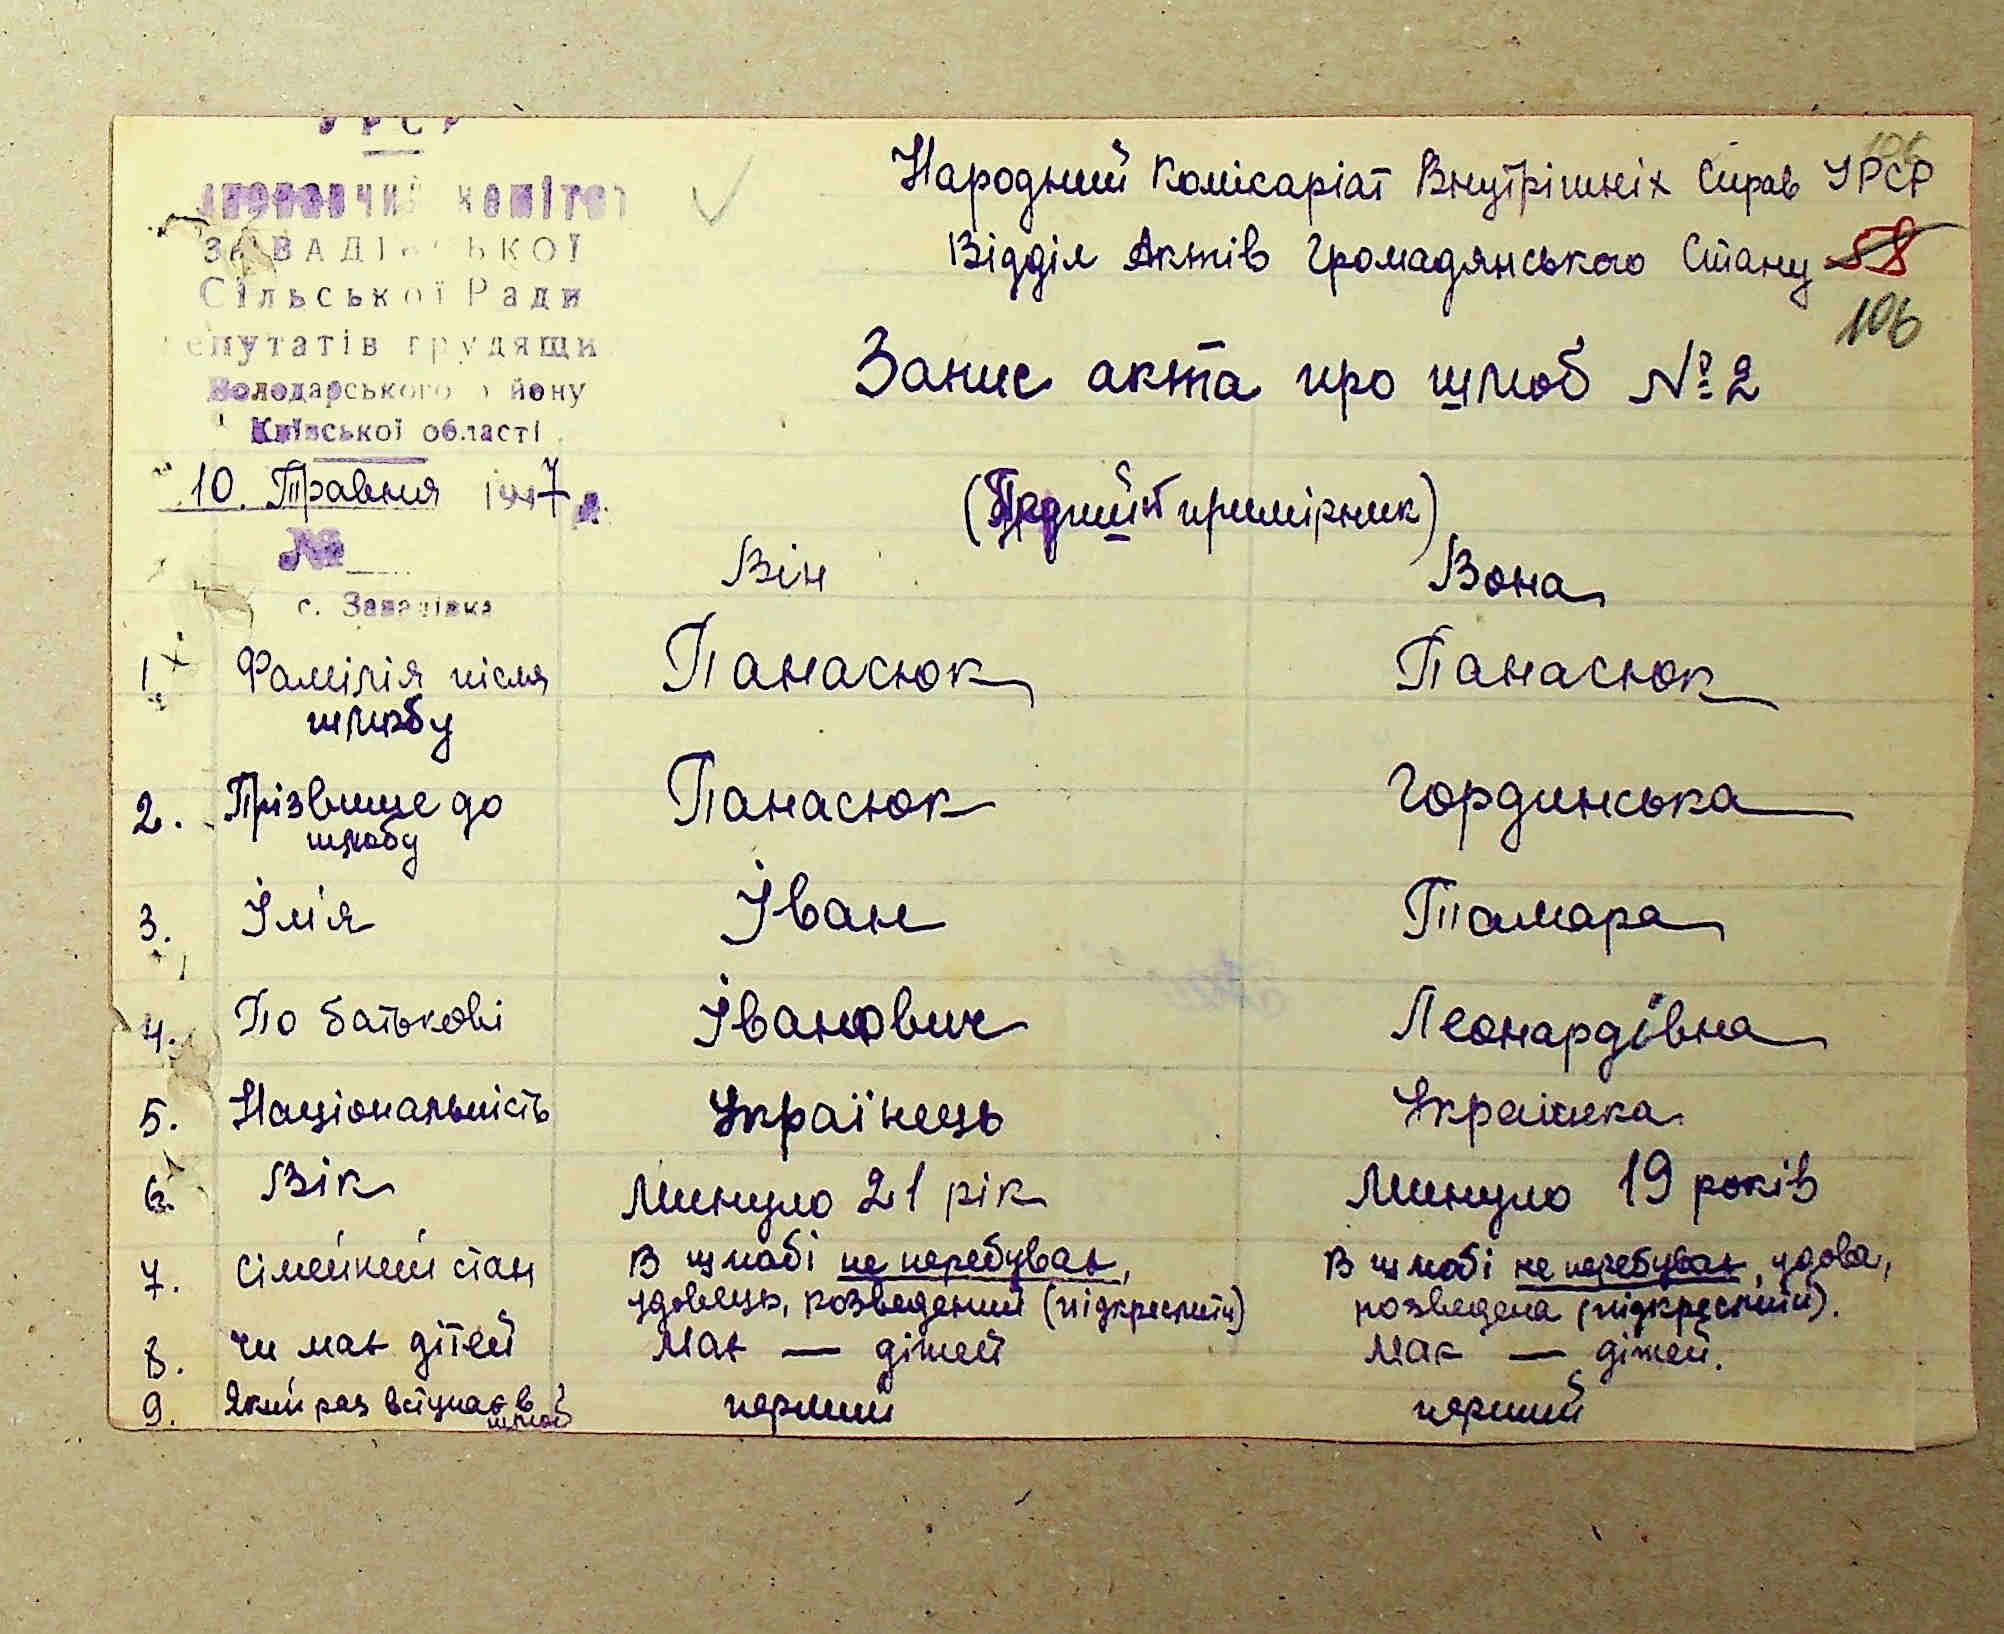 УРСР
комітет
ЗАВАДІВСЬКОЇ
Сільської Ради
епутатів трудящи
Володарського йону
Київської області
10. Травня 1947 р.
№
с. Завадівка
Народний Комісаріат Внутрішніх Справ УРСР
Відділ Актів Громадянського Стану 58
106
106
Запис акта про шлюб № 2
(примірник)
Він Вона
1. Фамілія після шлюбу Панасюк Панасюк
2. Прізвище до шлюбу Панасюк Гординська
3. Ім'я Іван Тамара
4. По батькові Іванович Леонардівна
5. Національність Українець Українка
6. Вік Минуло 21 рік Минуло 19 років
7. Сімейний стан В шлюбі не перебував, В шлюбі не перебував, удова,
удовець, розведений (підкреслити) розведена (підкреслити).
8. Чи має дітей Має — дітей Має — дітей.
9. Який раз вступає в шлюб перший перший